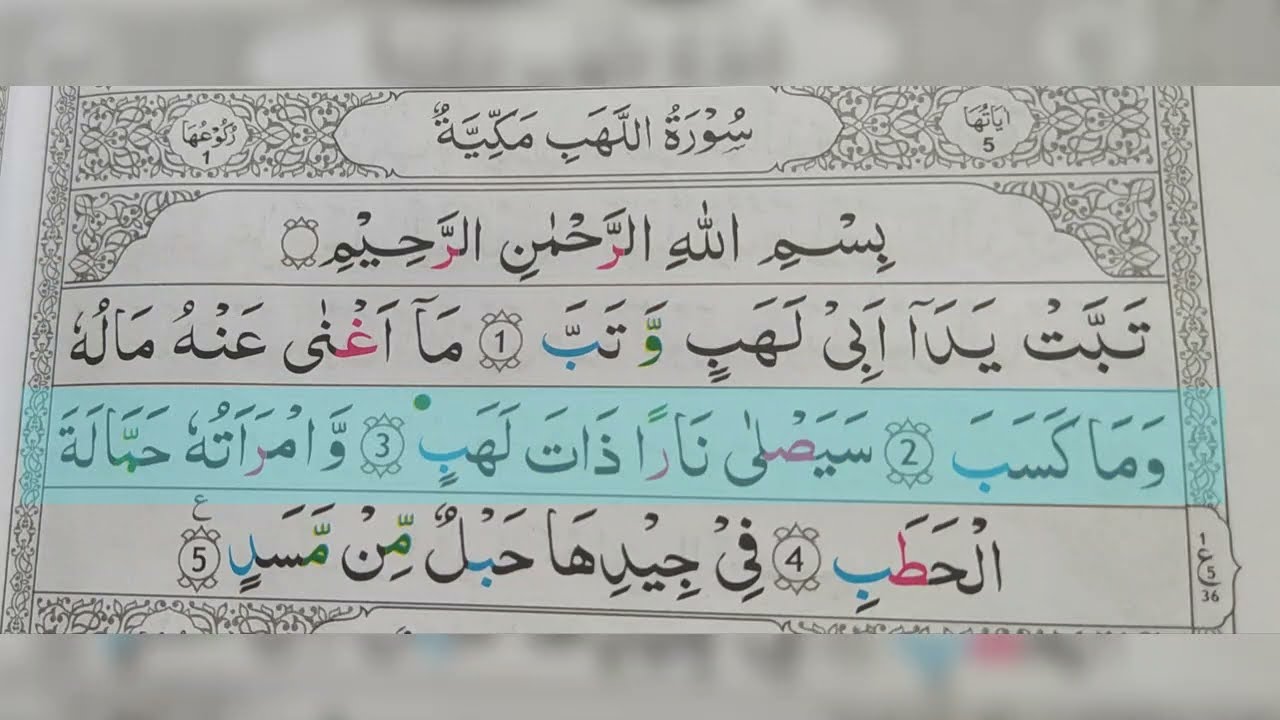 اٰیَاتُهَا 5
سُوْرَةُ اللَّهَبِ مَكِّیَّةٌ
رُكُوْعُهَا 1
بِسْمِ اللهِ الرَّحْمٰنِ الرَّحِیْمِ
تَبَّتْ یَدَاۤ اَبِیْ لَهَبٍ وَّ تَبَّ 1 مَاۤ اَغْنٰی عَنْهُ مَالُهٗ
وَمَا كَسَبَ 2 سَیَصْلٰی نَارًا ذَاتَ لَهَبٍ 3 وَّ امْرَاَتُهٗ حَمَّالَةَ
الْحَطَبِ 4 فِیْ جِیْدِهَا حَبْلٌ مِّنْ مَّسَدٍ 5 ع
1 ع 5 36